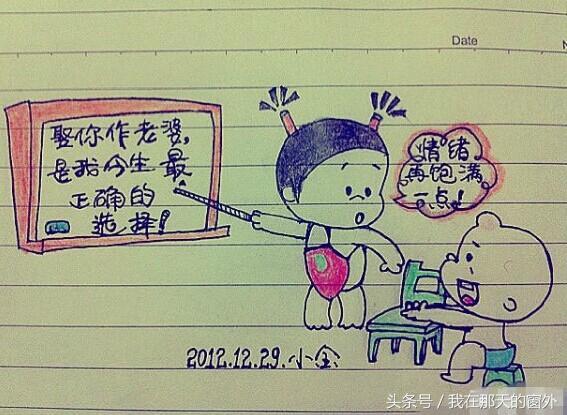 Date
娶你作老婆,
是我今生最
正确的
选择!
情绪
再饱满
一点!
2012.12.29.小
头条号 / 我在那天的窗外